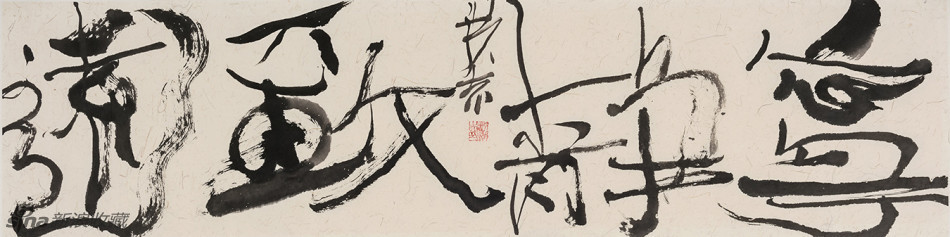 寧靜致遠
sina 新浪收藏